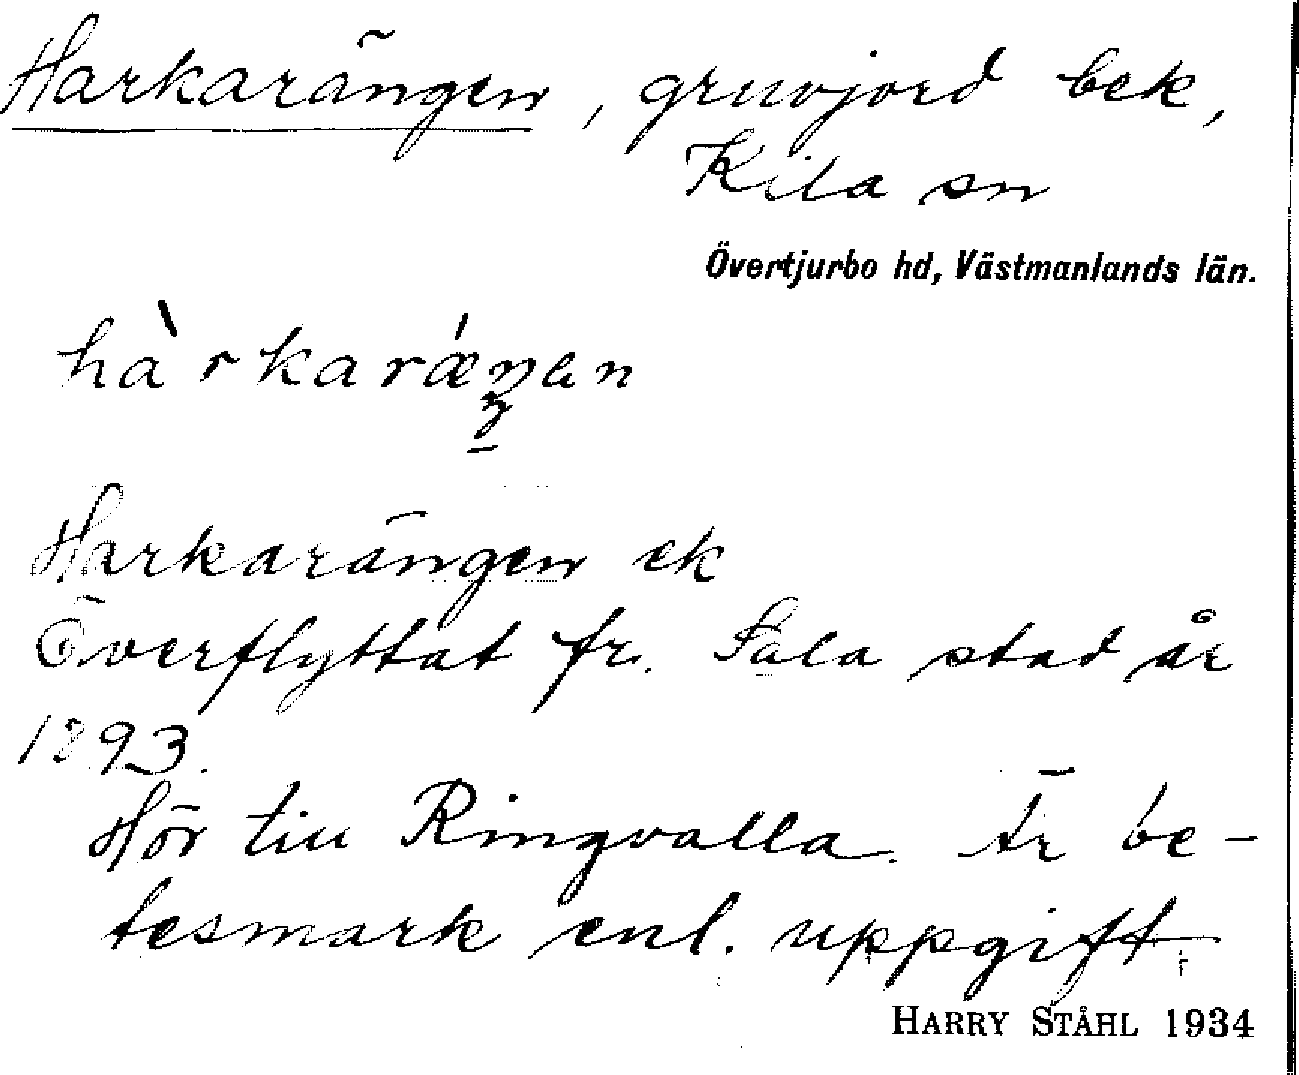 Harkarängen, gruvjord bek,
Kila sn
Övertjurbo hd, Västmanlands län.
hàrkarǽŋan
Harkarängen ek
Överflyttat fr. Sala stad år
1893.
Hör till Ringvalla. Är be-
tesmark enl. uppgift.
HARRY STÅHL 1934